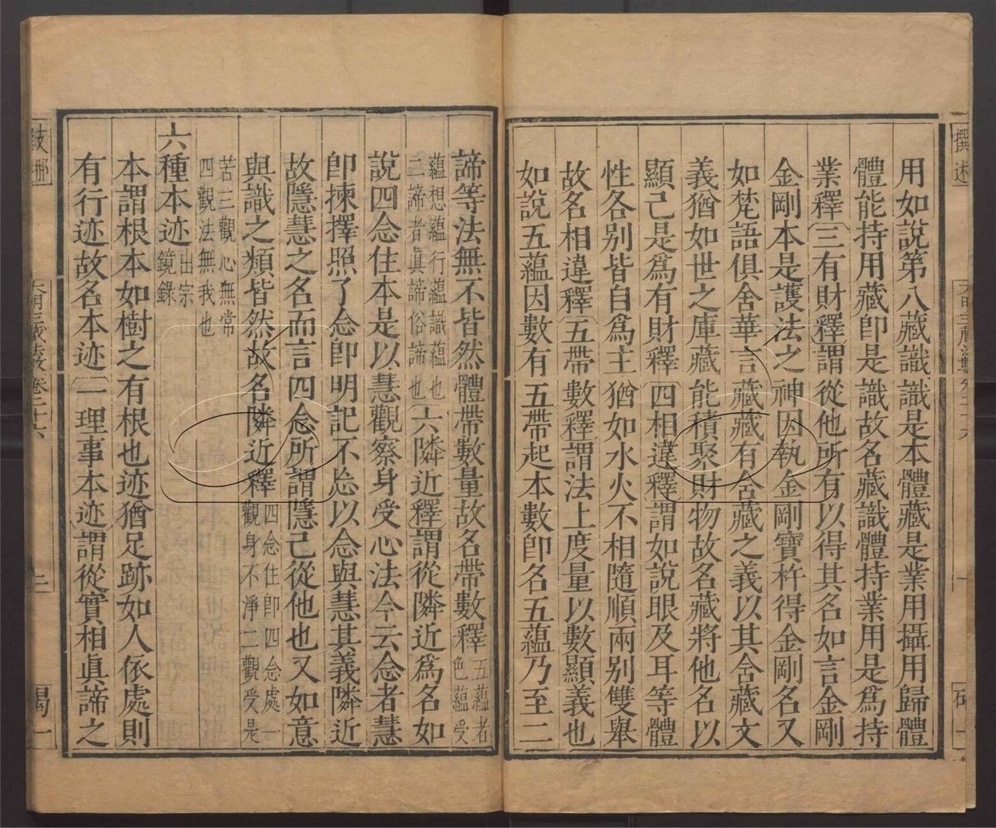 撰述
用如說第八藏識識是本體藏是業用攝用歸體
體能持用藏卽是識故名藏識體持業用是爲持
業釋三有財釋謂從他所有以得其名如言金剛
金剛本是護法之神因執金剛寶杵得金剛名又
如梵語俱舍華言藏藏有含藏之義以其含藏文
義猶如世之庫藏能積聚財物故名藏將他名以
顯己是爲有財釋四相違釋謂如說眼及耳等體
性各別皆自爲主猶如水火不相隨順兩別雙舉
故名相違釋五帶數釋謂法上度量以數顯義也
如說五蘊因數有五帶起本數卽名五蘊乃至二
諦等法無不皆然體帶數量故名帶數釋五蘊者色蘊受
蘊想蘊行蘊識蘊也二諦者眞諦俗諦也六隣近釋謂從隣近爲名如
說四念住本是以慧觀察身受心法今云念者慧
卽揀擇照了念卽明記不忘以念與慧其義隣近
故隱慧之名而言四念所謂隱己從他也又如意
與識之類皆然故名隣近釋四念住卽四念處一觀身不淨二觀受是
苦三觀心無常四觀法無我也
六種本迹出宗鏡錄
本謂根本如樹之有根也迹猶足跡如人依處則
有行迹故名本迹一理事本迹謂從實相眞諦之
大明三藏法數卷二十六
三